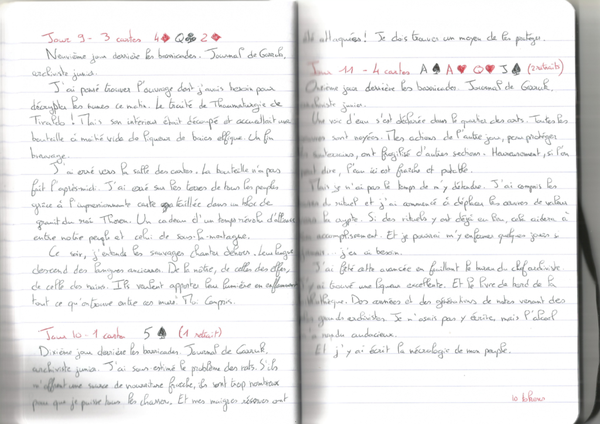 Jour 9 - 3 cartes 4♦ Q♣ 2♦
Neuvième jour derrière les barricades. Journal de Garuk,
archiviste junior.
J'ai pensé trouver l'ouvrage dont j'avais besoin pour
décrypter les runes ce matin. Le traité de Thaumaturgie de
! Mais son intérieur était découpé et accueillait une
bouteille à moitié vide de liqueur de baies elfique. Un fin
breuvage.
J'ai erré vers la salle des cartes. La bouteille n'a pas
fait l'après-midi. J'ai erré sur les terres de tous les peuples
grâce à l'impressionnante carte taillée dans un bloc de
granit du roi Thorin. Un cadeau d'un temps révolu d'alliance
entre notre peuple et celui de sous-la-montagne.
Ce soir, j'entends les sauvages chanter dehors. Leur langue
descend des langues anciennes. De la nôtre, de celles des elfes,
de celle des nains. Ils veulent apporter leur lumière en enflammant
tout ce qu'on trouve entre ces murs. Moi compris.
Jour 10 - 1 carte 5♠ (1 retrait)
Dixième jour derrière les barricades. Journal de Garuk,
archiviste junior. J'ai sous-estimé le problème des rats. S'ils
m'offrent une source de nourriture fraîche, ils sont trop nombreux
pour que je puisse tous les chasser. Et mes maigres réserves ont
été attaquées ! Je dois trouver un moyen de les protéger.
Jour 11 - 4 cartes A♠ A♥ Q♦ J♠ (2 retraits)
Onzième jour derrière les barricades. Journal de Garuk,
archiviste junior.
Une voie d'eau s'est déclarée dans le quartier des rats. Toutes les
sont noyées. Mes actions de l'autre jour, pour protéger
souterrains, ont fragilisé d'autres sections. Heureusement, si l'on
peut dire, l'eau ici est fraîche et potable.
Mais je n'ai pas le temps de m'y détendre. J'ai compris les
du rituel et j'ai commencé à déplacer les œuvres de valeur
la crypte. Si des rituels y ont déjà eu lieu, cela aidera à
accomplissement. Et je pourrai m'y enfermer quelques jours si
j'en ai besoin.
J'ai fêté cette avancée en fouillant le bureau du chef archiviste
j'y ai trouvé une liqueur excellente. Et le livre de bord de la
bibliothèque. Des années et des générations de notes venant des
plus grands archivistes. Je n'osais pas y écrire, mais l'alcool
rendu audacieux.
Et j'y ai écrit la nécrologie de mon peuple.
10